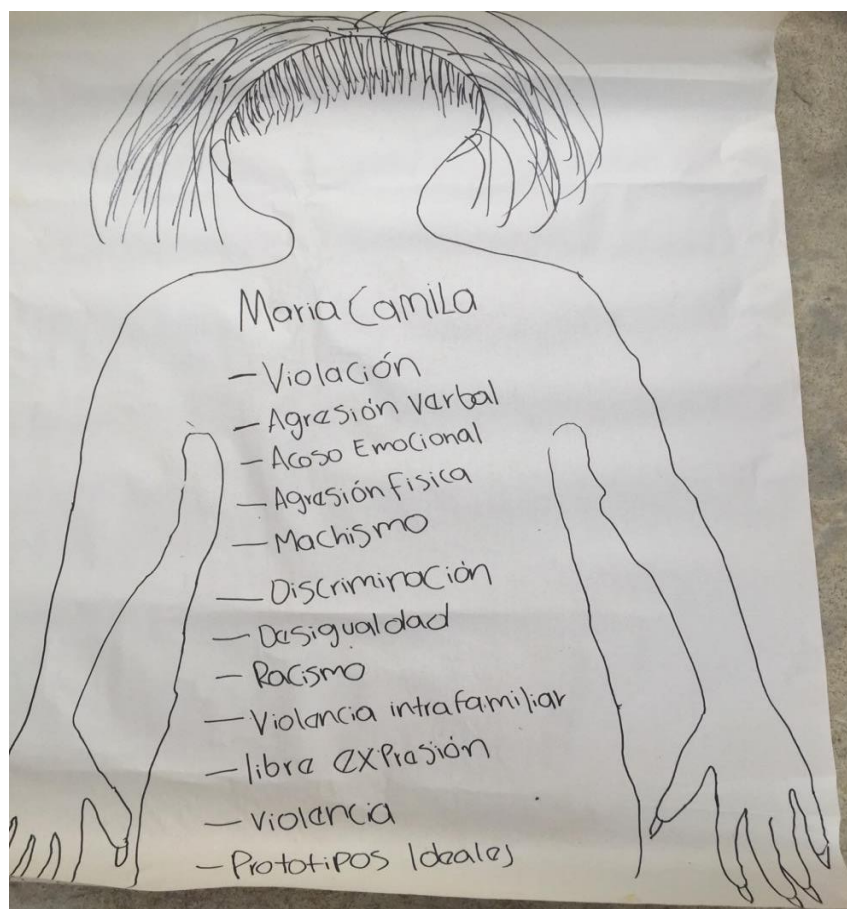 Maria Camila
- Violación
- Agresión Verbal
- Acoso Emocional
- Agresión fisica
- Machismo
- Discriminación
- Desigualdad
- Racismo
- Violencia intrafamiliar
- libre exPresión
- Violencia
- Prototipos Ideales